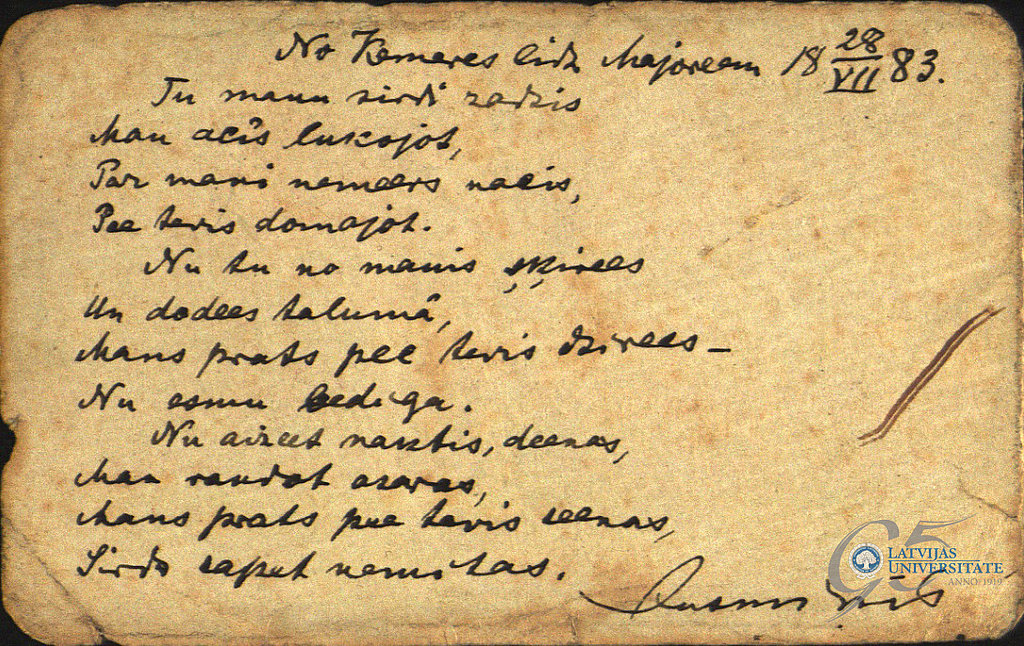 No Kemeres lidz Majoreem 18 28/VII 83.
Tu manu sirdi zadzis
Man acīs lukojot,
Par mani nemeers nacis,
Pee tevis domajot.
Nu tu no manis šķirees
Un dodees talumâ,
Mans prats pee tevis dzirees –
Nu esmu bediga.
Nu aizeet nakttis, deenas,
Man raudot asaras,
Mans prats pee tevis seenas,
Sirds sapet nemitas.
LATVIJAS
UNIVERSITATE
ANNO 1919